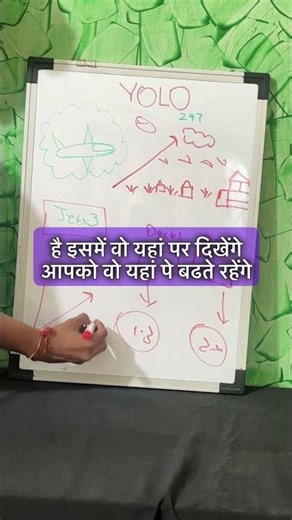 YOLO
247
JetX3
है इसमें वो यहां पर दिखेंगे
आपको वो यहां पे बढते रहेंगे
1-3